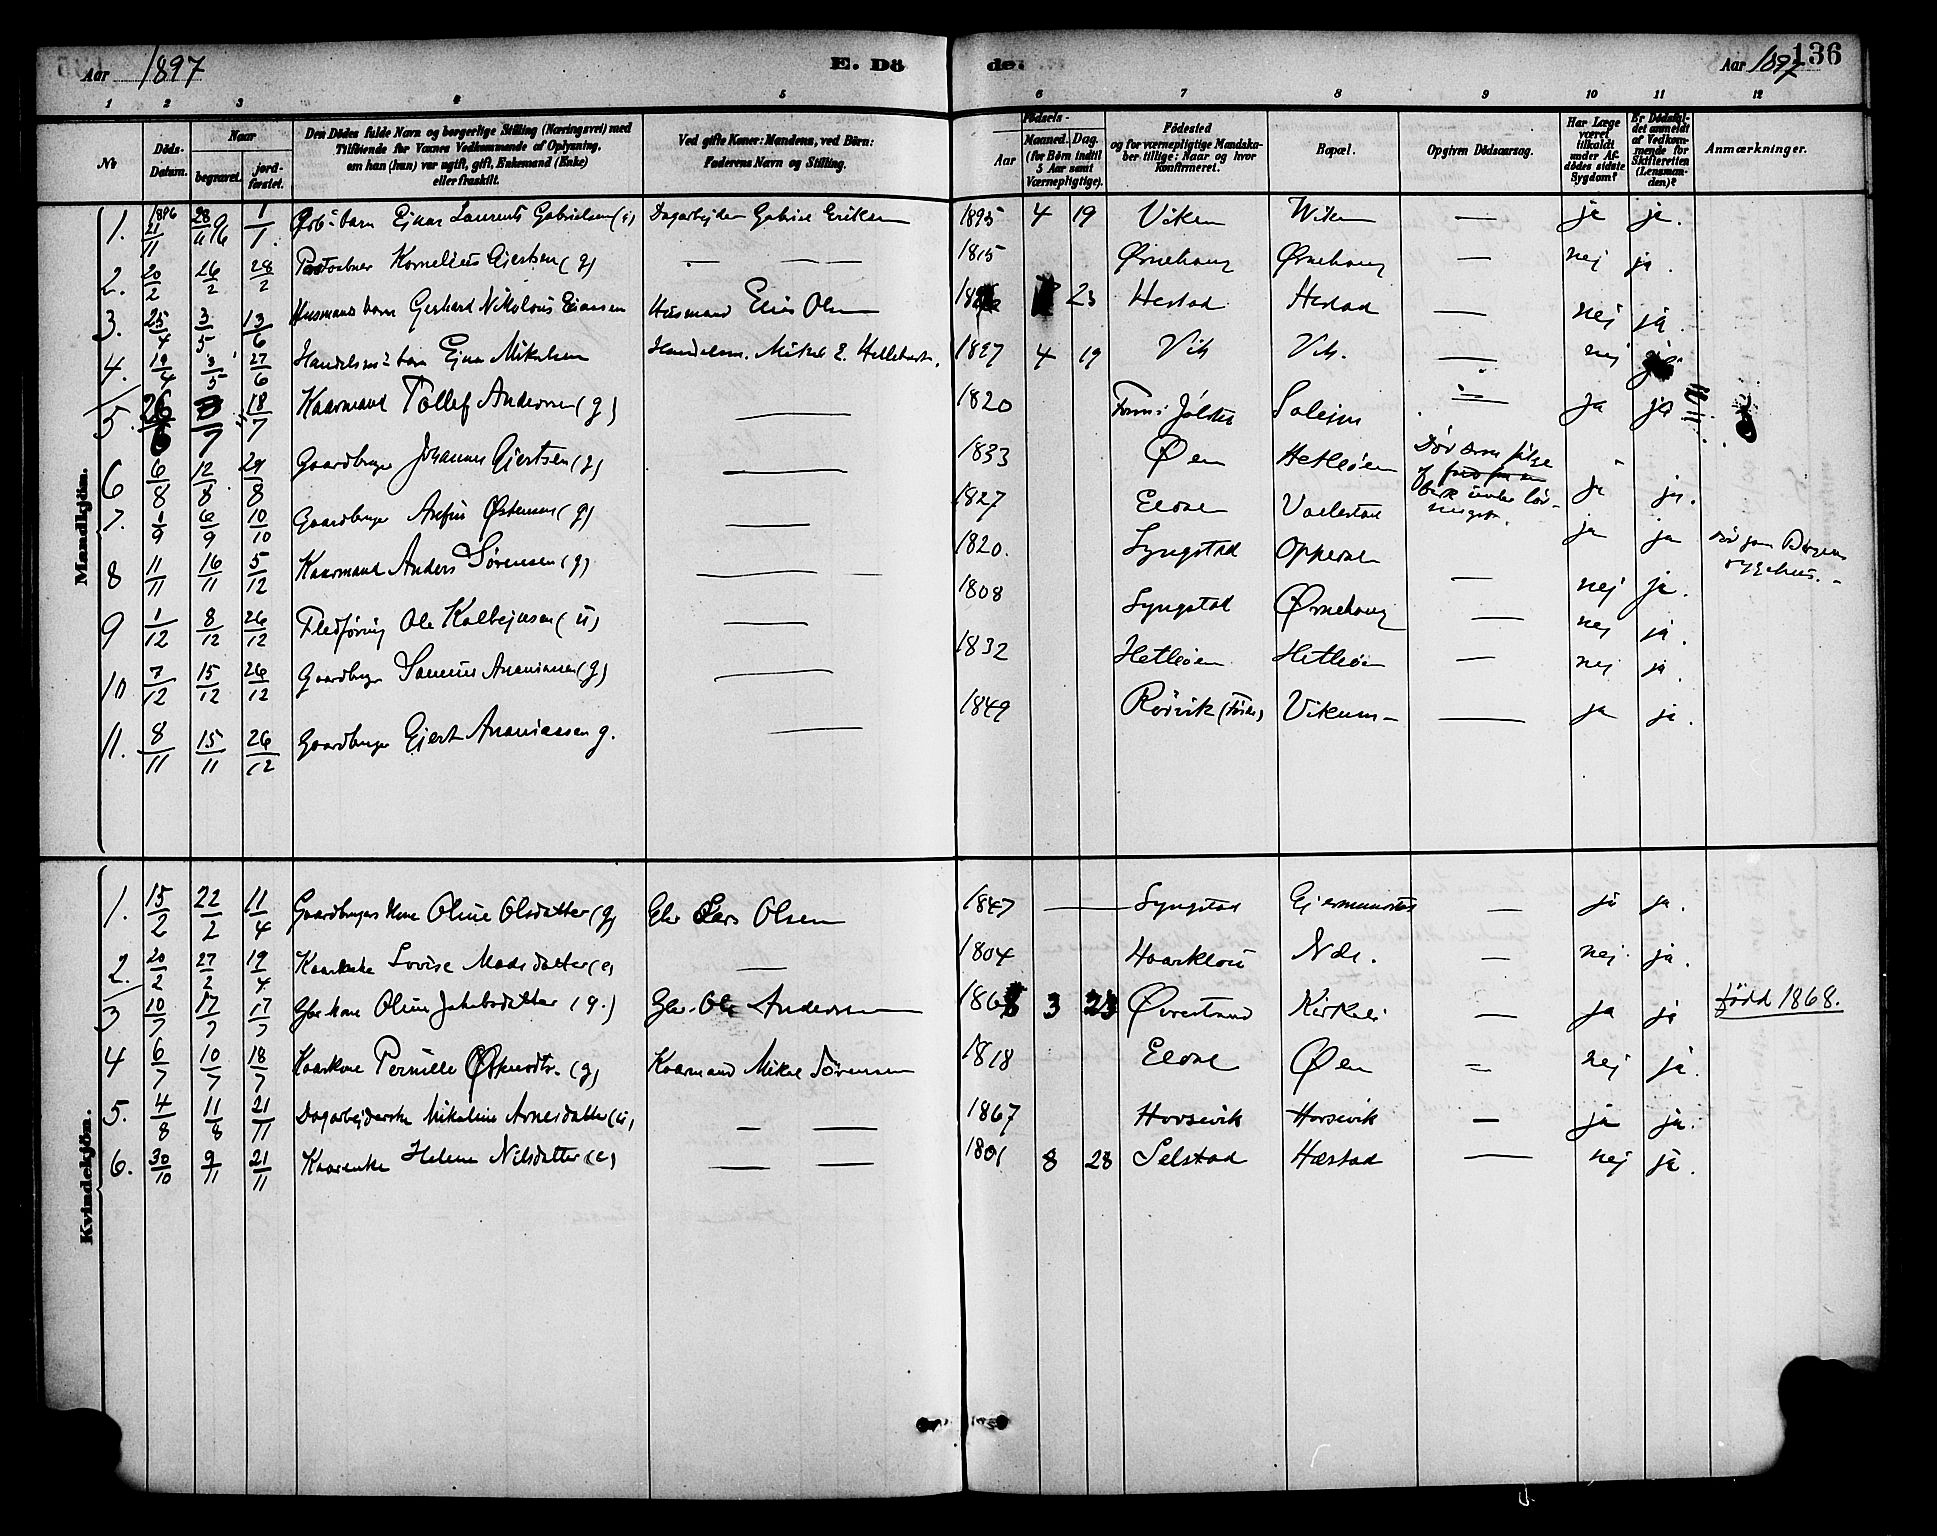 Aar 1897 E. Dö
de: Aar 1897 136
1 2 3 4 5 6 7 8 9 10 11 12
No
Döds-Datum.
Naar
begravet.
jord-fæstet.
Den Dödes fulde Navn og borgerlige Stilling (Næringsvei) med
Tilföiende for Voxnes Vedkommende af Oplysning,
om han (hun) var ugift, gift, Enkemand (Enke)
eller fraskilt.
Ved gifte Koner: Mandens, ved Börn:
Faderens Navn og Stilling.
Födsels-
Aar
Maaned. Dag.
(for Börn indtil
5 Aar samt
Værnepligtige).
Födested
og for værnepligtige Mandska-
ber tillige: Naar og hvor
konfirmeret.
Bopæl.
Opgiven Dödsaarsag.
Har Læge
været
tilkaldt
under Af-
dödes sidste
Sygdom?
Er Dödsfal-
det anmeldt
af Vedkom-
mende for
Skifteretten
(Lensman-
den)?
Anmærkninger.
Mandkjön.
1. 1896 21/11 28/11 96 1/1. barn Ejnar Laurents Gabrielsen (u) Dagarbejder Gabriel Eriksen 1895 4 19 Viken Viken — ja ja.
2. 20/2 26/2 28/2 Kornelius Gjertsen (g) — — 1815 Ørnehaug Ørnehaug — nej ja.
3. 25/4 3/5 13/6 Husmands barn Gerhard Nikolaus Eliassen Husmand Elias Olsen 23 Hestad Hestad — nej ja.
4. 19/4 3/5 27/6 barn Ejnar Mikalsen Handelsm. Mikal E. 1897 4 19 Vik Vik. — nej
5. 18/7 Kaarmand Tollef Andersen (g) — 1820 Jølster Soleim — ja ja
6 6/8 12/8 29/8 Gaardbruger Johannes Gjertsen (g) — 1833 Øen Hetleøen Død som følge af ja ja.
7. 1/9 6/9 10/10 Gaardbruger Østensen (g) — 1827 Eldal Vallestad ja ja
8 11/11 16/11 5/12 Kaarmand Anders Sørensen (g) — 1820. Lyngstad Oppedal — nej ja. død paa Bergens sygehus. –
9 1/12 8/12 26/12 Fledføring Ole Kolbejnsen (u) — 1808 Lyngstad Ørnehaug — nej ja.
10 7/12 15/12 26/12 Gaardbruger Ananiassen (g) — 1832 Hetleøen Hetleøen — nej ja.
11. 8/11 15/11 26/12 Gaardbruger Gjert Ananiassen g. — 1849 Rørvik (Førde) — ja ja.
Kvindekjön.
1. 15/2 22/2 11/4 Gaardbrugers Kone Oline Olsdatter (g) Gbr Lars Olsen 1847 — Lyngstad Gjermundstad — ja ja.
2. 20/2 27/2 19/4 Kaarenke Lovise Madsdatter (e) — 1804 Haarklau Ndr. — nej ja.
3 10/7 17/7 17/7 Gbr kone Oline Jakobsdatter (g.) Gbr. Ole Andersen 1868 3 23 Øvrestrand Kirkeli — ja ja født 1868.
4 6/7 10/7 18/7 Kaarkone Pernille Østensdtr. (g) Kaarmand Mikal Sørensen 1818 Eldal Øen — nej ja.
5. 4/8 11/8 21/11 Dagarbejderske Nikoline Arnesdatter (u) — — 1867 Horsevik Horsevik — ja ja.
6. 30/10 9/11 21/11 Kaarenke Helene Nilsdatter (e) — — 1801 8 28 Selstad Hæstad — nej ja.